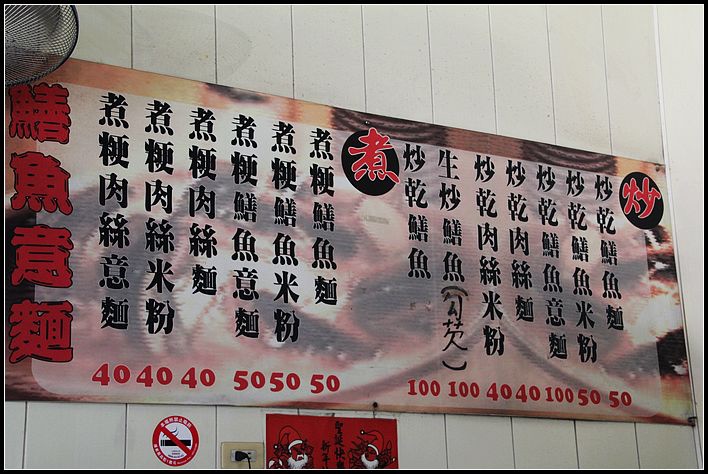 炒
炒乾鱔魚麵
50
炒乾鱔魚米粉
50
炒乾鱔魚意麵
100
炒乾肉絲麵
40
炒乾肉絲米粉
40
生炒鱔魚(勾芡)
100
炒乾鱔魚
100
煮
煮粳鱔魚麵
50
煮粳鱔魚米粉
50
煮粳鱔魚意麵
50
煮粳肉絲麵
40
煮粳肉絲米粉
40
煮粳肉絲意麵
40
鱔魚意麵
聖誕快
新年